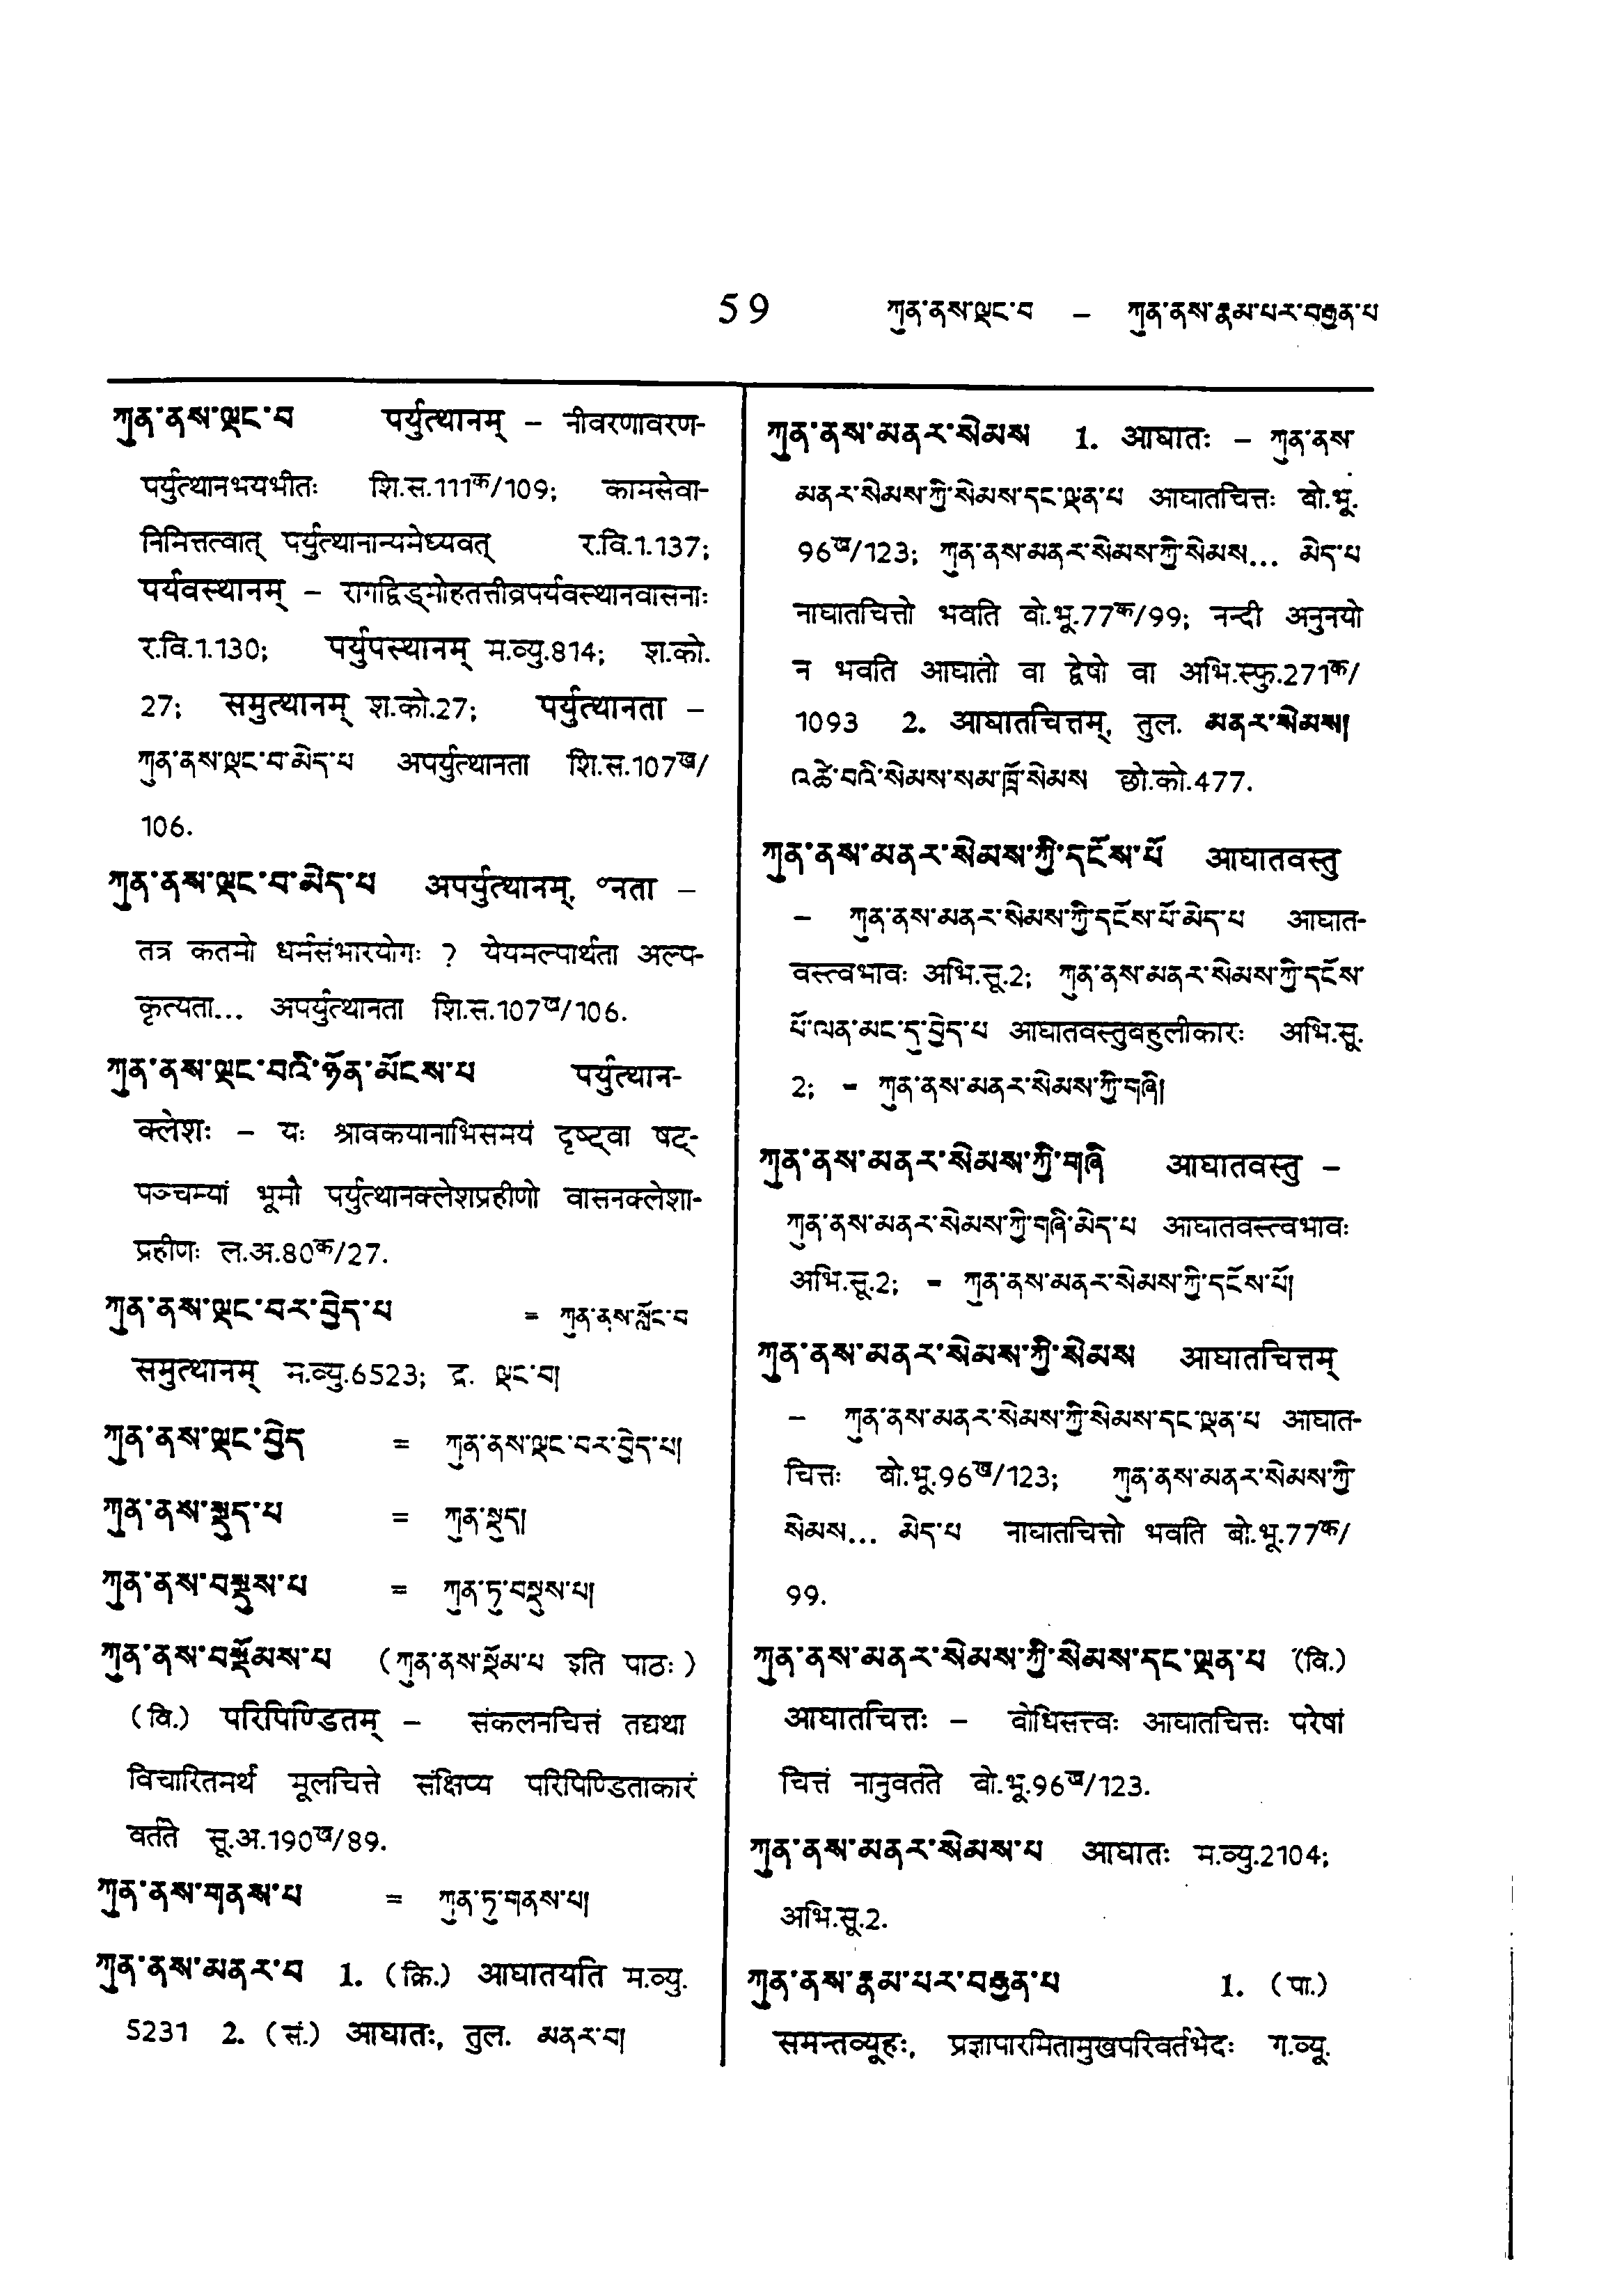 59 ཀུན་ནས་ལྡང་བ – ཀུན་ནས་རྣམ་པར་བརྒྱན་པ
ཀུན་ནས་ལྡང་བ पर्युत्थानम् – नीवरणावरण-
पर्युत्थानभयभीतः शि.स.111क/109; कामसेवा-
निमित्तत्वात् पर्युत्थानान्यमेध्यवत् र.वि.1.137;
पर्यवस्थानम् – रागद्विड्मोहतत्तीव्रपर्यवस्थानवासनाः
र.वि.1.130; पर्युपस्थानम् म.व्यु.814; श.को.
27; समुत्थानम् श.को.27; पर्युत्थानता –
ཀུན་ནས་ལྡང་བ་མེད་པ अपर्युत्थानता शि.स.107ख/
106.
ཀུན་ནས་ལྡང་བ་མེད་པ अपर्युत्थानम्, °नता –
तत्र कतमो धर्मसंभारयोगः ? येयमल्पार्थता अल्प-
कृत्यता... अपर्युत्थानता शि.स.107ख/106.
ཀུན་ནས་ལྡང་བའི་ཉོན་མོངས་པ पर्युत्थान-
क्लेशः – यः श्रावकयानाभिसमयं दृष्ट्वा षट्-
पञ्चम्यां भूमौ पर्युत्थानक्लेशप्रहीणो वासनक्लेशा-
प्रहीणः ल.अ.80क/27.
ཀུན་ནས་ལྡང་བར་བྱེད་པ = ཀུན་ནས་སློང་བ
समुत्थानम् म.व्यु.6523; द्र. ལྡང་བ།
ཀུན་ནས་ལྡང་བྱེད = ཀུན་ནས་ལྡང་བར་བྱེད་པ།
ཀུན་ནས་སྡུད་པ = ཀུན་སྡུད།
ཀུན་ནས་བསྡུས་པ = ཀུན་ཏུ་བསྡུས་པ།
ཀུན་ནས་བསྡོམས་པ (ཀུན་ནས་སྡོམ་པ इति पाठः)
(वि.) परिपिण्डितम् – संकलनचित्तं तद्यथा
विचारितमर्थ मूलचित्ते संक्षिप्य परिपिण्डिताकारं
वर्तते सू.अ.190ख/89.
ཀུན་ནས་གནས་པ = ཀུན་ཏུ་གནས་པ།
ཀུན་ནས་མནར་བ 1. (क्रि.) आघातयति म.व्यु.
5231 2. (सं.) आघातः, तुल. མནར་བ།
ཀུན་ནས་མནར་སེམས 1. आघातः – ཀུན་ནས་
མནར་སེམས་ཀྱི་སེམས་དང་ལྡན་པ आघातचित्तः बो.भू.
96ख/123; ཀུན་ནས་མནར་སེམས་ཀྱི་སེམས... མེད་པ
नाघातचित्तो भवति बो.भू.77क/99; नन्दी अनुनयो
न भवति आघातो वा द्वेषो वा अभि.स्फु.271क/
1093 2. आघातचित्तम्, तुल. མནར་སེམས།
འཚེ་བའི་སེམས་སམ་ཁྲོ་སེམས छो.को.477.
ཀུན་ནས་མནར་སེམས་ཀྱི་དངོས་པོ आघातवस्तु
– ཀུན་ནས་མནར་སེམས་ཀྱི་དངོས་པོ་མེད་པ आघात-
वस्त्वभावः अभि.सू.2; ཀུན་ནས་མནར་སེམས་ཀྱི་དངོས་
པོ་ལན་མང་དུ་བྱེད་པ आघातवस्तुबहुलीकारः अभि.सू.
2; = ཀུན་ནས་མནར་སེམས་ཀྱི་གཞི།
ཀུན་ནས་མནར་སེམས་ཀྱི་གཞི आघातवस्तु –
ཀུན་ནས་མནར་སེམས་ཀྱི་གཞི་མེད་པ आघातवस्त्वभावः
अभि.सू.2; = ཀུན་ནས་མནར་སེམས་ཀྱི་དངོས་པོ།
ཀུན་ནས་མནར་སེམས་ཀྱི་སེམས आघातचित्तम्
– ཀུན་ནས་མནར་སེམས་ཀྱི་སེམས་དང་ལྡན་པ आघात-
चित्तः बो.भू.96ख/123; ཀུན་ནས་མནར་སེམས་ཀྱི་
སེམས... མེད་པ नाघातचित्तो भवति बो.भू.77क/
99.
ཀུན་ནས་མནར་སེམས་ཀྱི་སེམས་དང་ལྡན་པ (वि.)
आघातचित्तः – बोधिसत्त्वः आघातचित्तः परेषां
चित्तं नानुवर्तते बो.भू.96ख/123.
ཀུན་ནས་མནར་སེམས་པ आघातः म.व्यु.2104;
अभि.सू.2.
ཀུན་ནས་རྣམ་པར་བརྒྱན་པ 1. (पा.)
समन्तव्यूहः, प्रज्ञापारमितामुखपरिवर्तभेदः ग.व्यू.